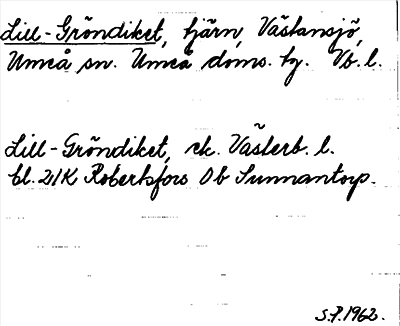 Lill-Gröndiket, tjärn, Västansjö,
Umeå sn. Umeå doms. tg. Vb. l.
Lill-Gröndiket, ek. Västerb. l.
bl. 21K Robertsfors Ob Sunnantorp.
S.P. 1962.